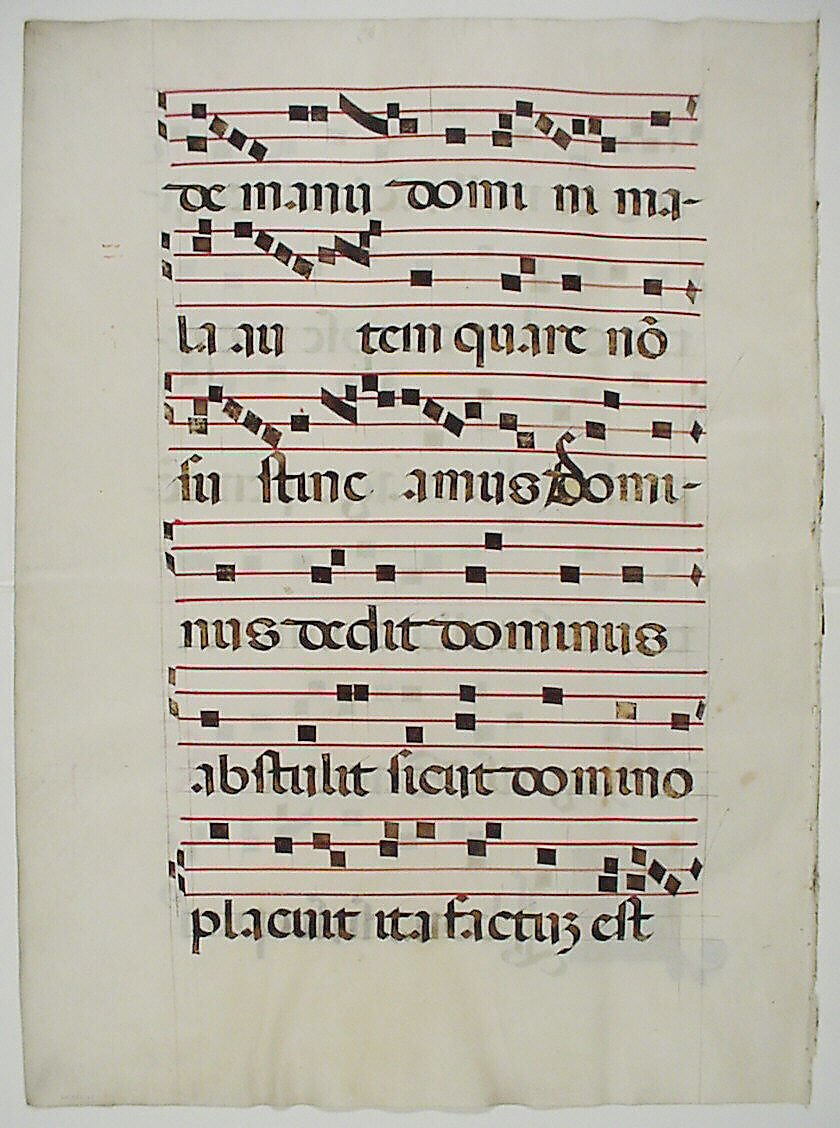 de manu domi ni ma-
la au tem quare nō
su stine amus domi-
nus dedit dominus
abstulit sicut domino
placuit ita factuꝫ est